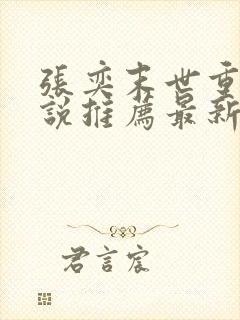 張奕末世重
説推薦最新
君言宸